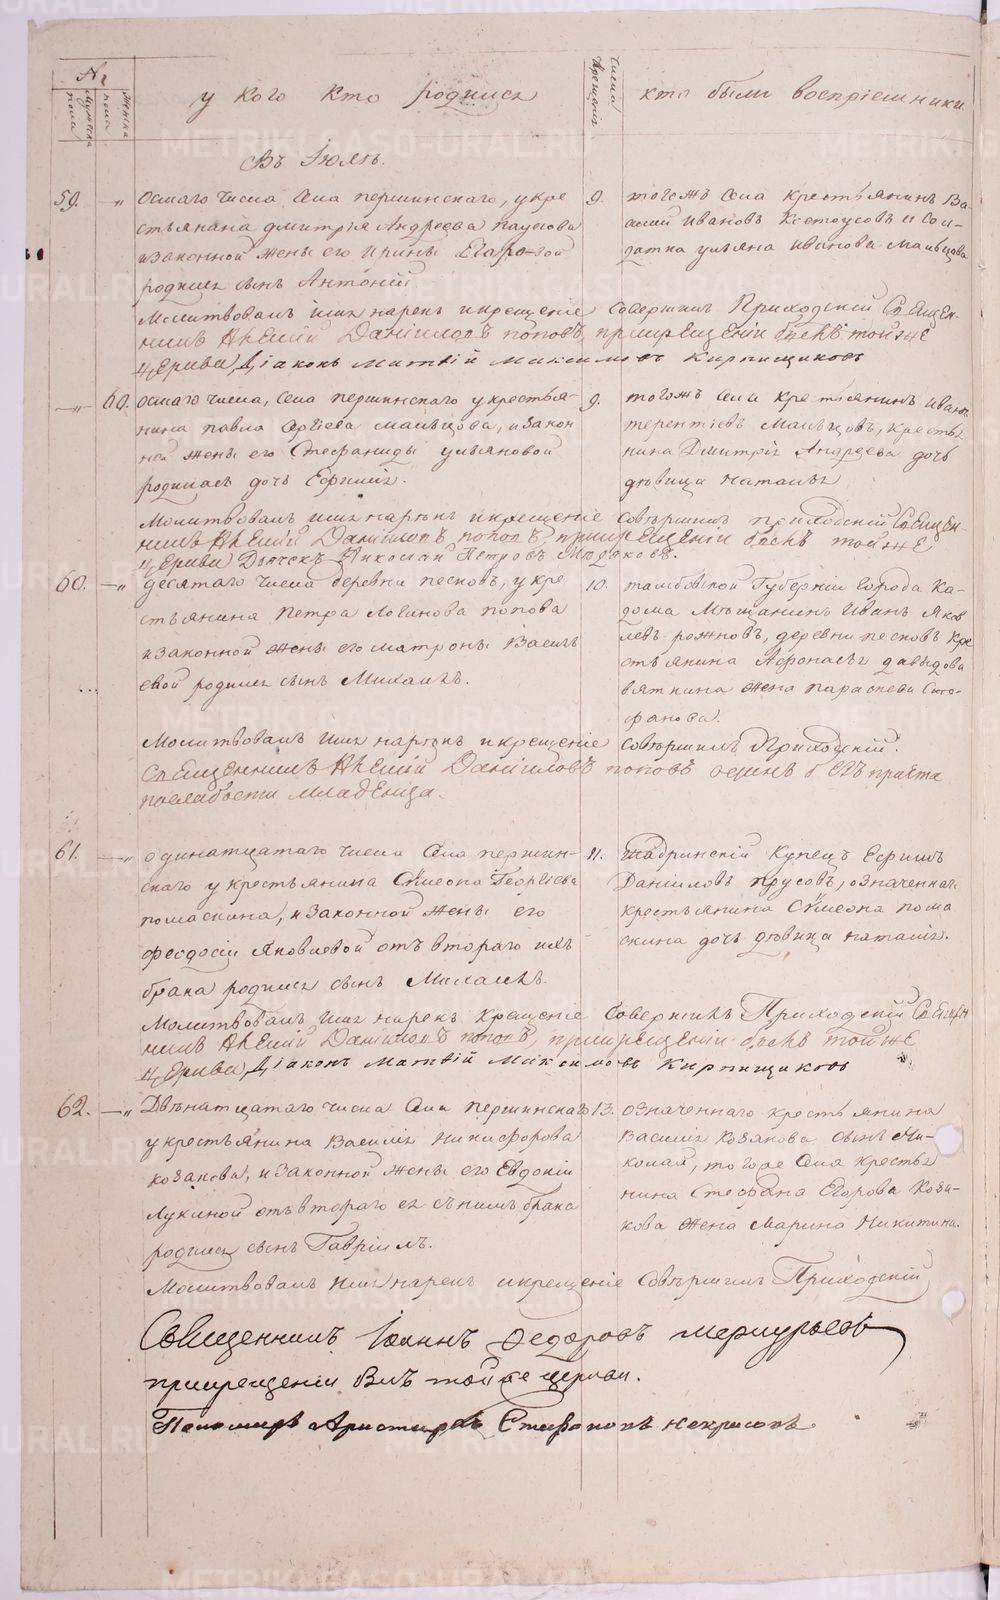 №
мужеска пола
женска пола
у кого кто родился
числа крещенiя
кто были воспрiемники.
Въ Iюлѣ.
59. „ Осмаго числа села першинскаго, у кре
стьянина Дмитрiя Андреева
и законной жены его Ирины
родился сынъ Антонiй
9. тогожъ села крестьянинъ Ва
силiй Ивановъ Ксетоусовъ и Сол-
датка ульяна Иванова Мальцова
Молитвовалъ имя нарекъ и крещенiе совершилъ Приходскiй Священ-
никъ Данiиловъ поповъ, при крещенiи былъ той же
церкви Дiаконъ Матвiй Максимовъ Кирпищиковъ
— „ — 60. осмаго числа, села першинскаго у крестья-
нина павла Сергiева мальцова, и закон
ной жены его Стефаниды ульяновой
родилась дочь Евфимiя.
9. тогожъ села крестьянинъ Иванъ
терентiевъ Мальцовъ, крестья
нина Дмитрiя Андреева дочь
дѣвица наталья
Молитвовалъ имя нарѣкъ и крещенiе совѣршилъ приходскiй Священ
никъ Данiиловъ поповъ, при крещенiи былъ той же
церкви Дьячекъ Николай Петровъ
60. — „ десятаго числа деревни песковъ, у кре
стьянина Петра Логинова попова
и законной жены его матроны Василь
евой родился сынъ Михаилъ.
10. тамбовской Губернiи города Ка-
дома Мѣщанинъ Иванъ Яков
левъ рожновъ, деревни песковъ кре
стьянина Афонасья давыдова
вяткина жена параскева Сте-
фанова.
Молитвовалъ имя нарѣкъ и крещенiе совѣршилъ Приходскiй
Священникъ Данiиловъ поповъ одинъ безъ причта
послабости младенца.
61. — „ одинатцатаго числа села першин-
скаго у крестьянина Симеона Георгiева
помаскина, и законной жены его
феодосiи Яковлевой отъ втораго ихъ
брака родился сынъ Михаилъ.
11. Шадринскiй Купецъ Ефимъ
Данiиловъ прусовъ, означеннаго
крестьянина Симеона пома
скина дочь дѣвица наталiя.
Молитвовалъ имя нарекъ крещенiе совершилъ Приходскiй Священ
никъ Данiиловъ поповъ, при крещенiи былъ той же
церкви Дiаконъ Матвiй Максимовъ Кирпищиковъ
62. — „ Двѣнатцатаго числа села першинскаго
у крестьянина Василiя Никифорова
козакова, и законной жены его Евдокiи
Лукиной отъ втораго ея съ нимъ брака
родился сынъ Гаврiилъ.
13. означеннаго крестьянина
Василiя козакова сынъ Ни-
колай, тогоже села крестья
нина Стефана Егорова Коза-
кова жена Марина Никитина.
Молитвовалъ имя нарекъ и крещенiе совѣршилъ Приходскiй
Священникъ Iоаннъ Федоровъ Меркурьевъ
при крещенiи былъ той же церкви.
Пономарь Стефановъ некрасовъ.
METRIKI.GASO-URAL.RU